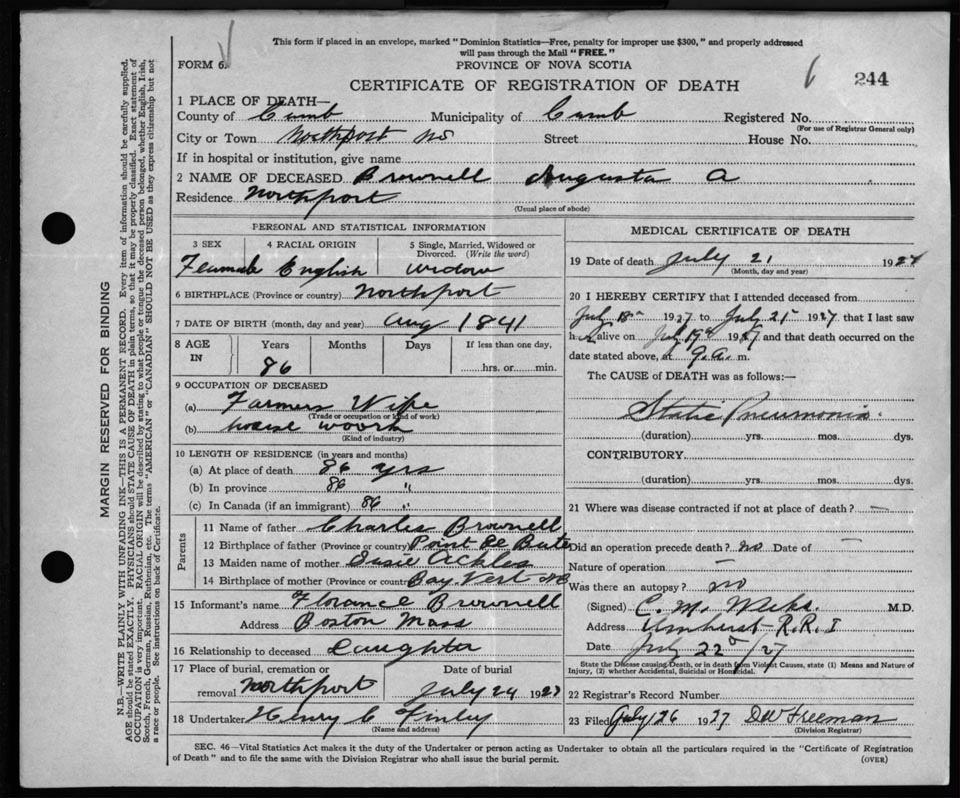 This form if placed in an envelope, marked "Dominion Statistics—Free, penalty for improper use $300," and properly addressed
will pass through the Mail "FREE."
FORM 6.
PROVINCE OF NOVA SCOTIA
6 244
CERTIFICATE OF REGISTRATION OF DEATH
1 PLACE OF DEATH—
County of Cumb Municipality of Cumb Registered No.
(For use of Registrar General only)
City or Town Northport NS Street House No.
If in hospital or institution, give name
2 NAME OF DECEASED Brownell Augusta A
Residence Northport
(Usual place of abode)
PERSONAL AND STATISTICAL INFORMATION
3 SEX 4 RACIAL ORIGIN 5 Single, Married, Widowed or Divorced. (Write the word)
Feamale English widow
6 BIRTHPLACE (Province or country) Northport
7 DATE OF BIRTH (month, day and year) Aug 1841
8 AGE IN Years Months Days If less than one day,
86 hrs. or min.
9 OCCUPATION OF DECEASED
(a) Farmers Wife
(Trade or occupation or kind of work)
(b) house woork
(Kind of industry)
10 LENGTH OF RESIDENCE (in years and months)
(a) At place of death 86 yrs
(b) In province 86 "
(c) In Canada (if an immigrant) 86 "
Parents
11 Name of father Charles Brownell
12 Birthplace of father (Province or country) Point De Bute
13 Maiden name of mother Susie Ackles
14 Birthplace of mother (Province or country) Bay Vert NB
15 Informant's name Florance Brownell
Address Boston Mass
16 Relationship to deceased Daughter
17 Place of burial, cremation or removal Northport Date of burial July 24 1927
18 Undertaker Henry C Finley
(Name and address)
MEDICAL CERTIFICATE OF DEATH
19 Date of death July 21 1927
(Month, day and year)
20 I HEREBY CERTIFY that I attended deceased from
July 18th 1927 to July 21st 1927 that I last saw
her alive on July 19th 1927 and that death occurred on the
date stated above, at 9 a. m.
The CAUSE of DEATH was as follows:—
Static Pneumonia.
(duration) yrs. mos. dys.
CONTRIBUTORY
(duration) yrs. mos. dys.
21 Where was disease contracted if not at place of death? —
Did an operation precede death? no Date of —
Nature of operation —
Was there an autopsy? no
(Signed) M.D.
Address Amherst R.R.1
Date July 22nd/27
State the Disease causing Death, or in death from Violent Causes, state (1) Means and Nature of
Injury, (2) whether Accidental, Suicidal or Homicidal.
22 Registrar's Record Number
23 Filed July 26 1927 DW Freeman
(Division Registrar)
SEC. 46—Vital Statistics Act makes it the duty of the Undertaker or person acting as Undertaker to obtain all the particulars required in the "Certificate of Registration
of Death" and to file the same with the Division Registrar who shall issue the burial permit.
(OVER)
MARGIN RESERVED FOR BINDING
N.B.—WRITE PLAINLY WITH UNFADING INK—THIS IS A PERMANENT RECORD. Every item of information should be carefully supplied.
AGE should be stated EXACTLY. PHYSICIANS should STATE CAUSE OF DEATH in plain terms, so that it may be properly classified. Exact statement of
OCCUPATION is very important. RACIAL ORIGIN will be described by stating to what people or tongue the deceased person belonged, whether English, Irish,
Scotch, French, German, Russian, Ruthenian, etc. The terms "AMERICAN" or "CANADIAN" SHOULD NOT BE USED as they express citizenship but not
a race or people. See instructions on back of Certificate.